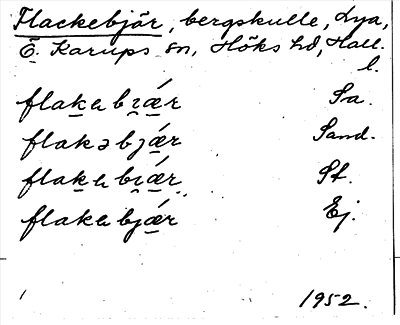 Flackebjär, bergskulle, Lya,
Ö. Karups sn, Höks hd, Hall.
l.
flakabi̯ǽr Sa.
flakəbjǽr Sand.
flakabi̯ǽr St.
flakabjǽr Ej.
1952.